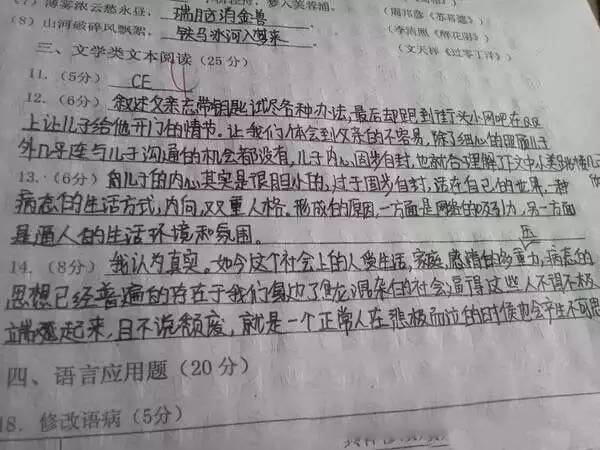 (7) 薄雾浓云愁永昼，瑞脑消金兽 (李清照《醉花阴》)
(8) 山河破碎风飘絮，铁马冰河入梦来 (文天祥《过零丁洋》)
三、文学类文本阅读（25分）
11.（5分） CE
12.（6分）叙述父亲忘带钥匙试尽各种办法，最后却跑到街头小网吧在QQ
上让儿子给他开门的情节。让我们体会到父亲的不容易，除了细心的照顾儿子
外几乎连与儿子沟通的机会都没有，儿子内心固步自封，也就
13.（6分）儿子的内心其实是很胆小的，过于固步自封，活在自己的世界，一种
病态的生活方式，内向，双重人格。形成的原因，一方面是网络的吸引力，另一方面
是逼人的生活环境和氛围。
14.（8分）我认为真实。如今这个社会上的人受生活，家庭，感情的多重压力，病态的
思想已经普遍的存在于我们身边了，龙混杂的社会逼得这些人不得不极
端起来，且不说颓废，就是一个正常人在悲极而泣的时候也会产生不可思
四、语言应用题（20分）
18. 修改语病（5分）